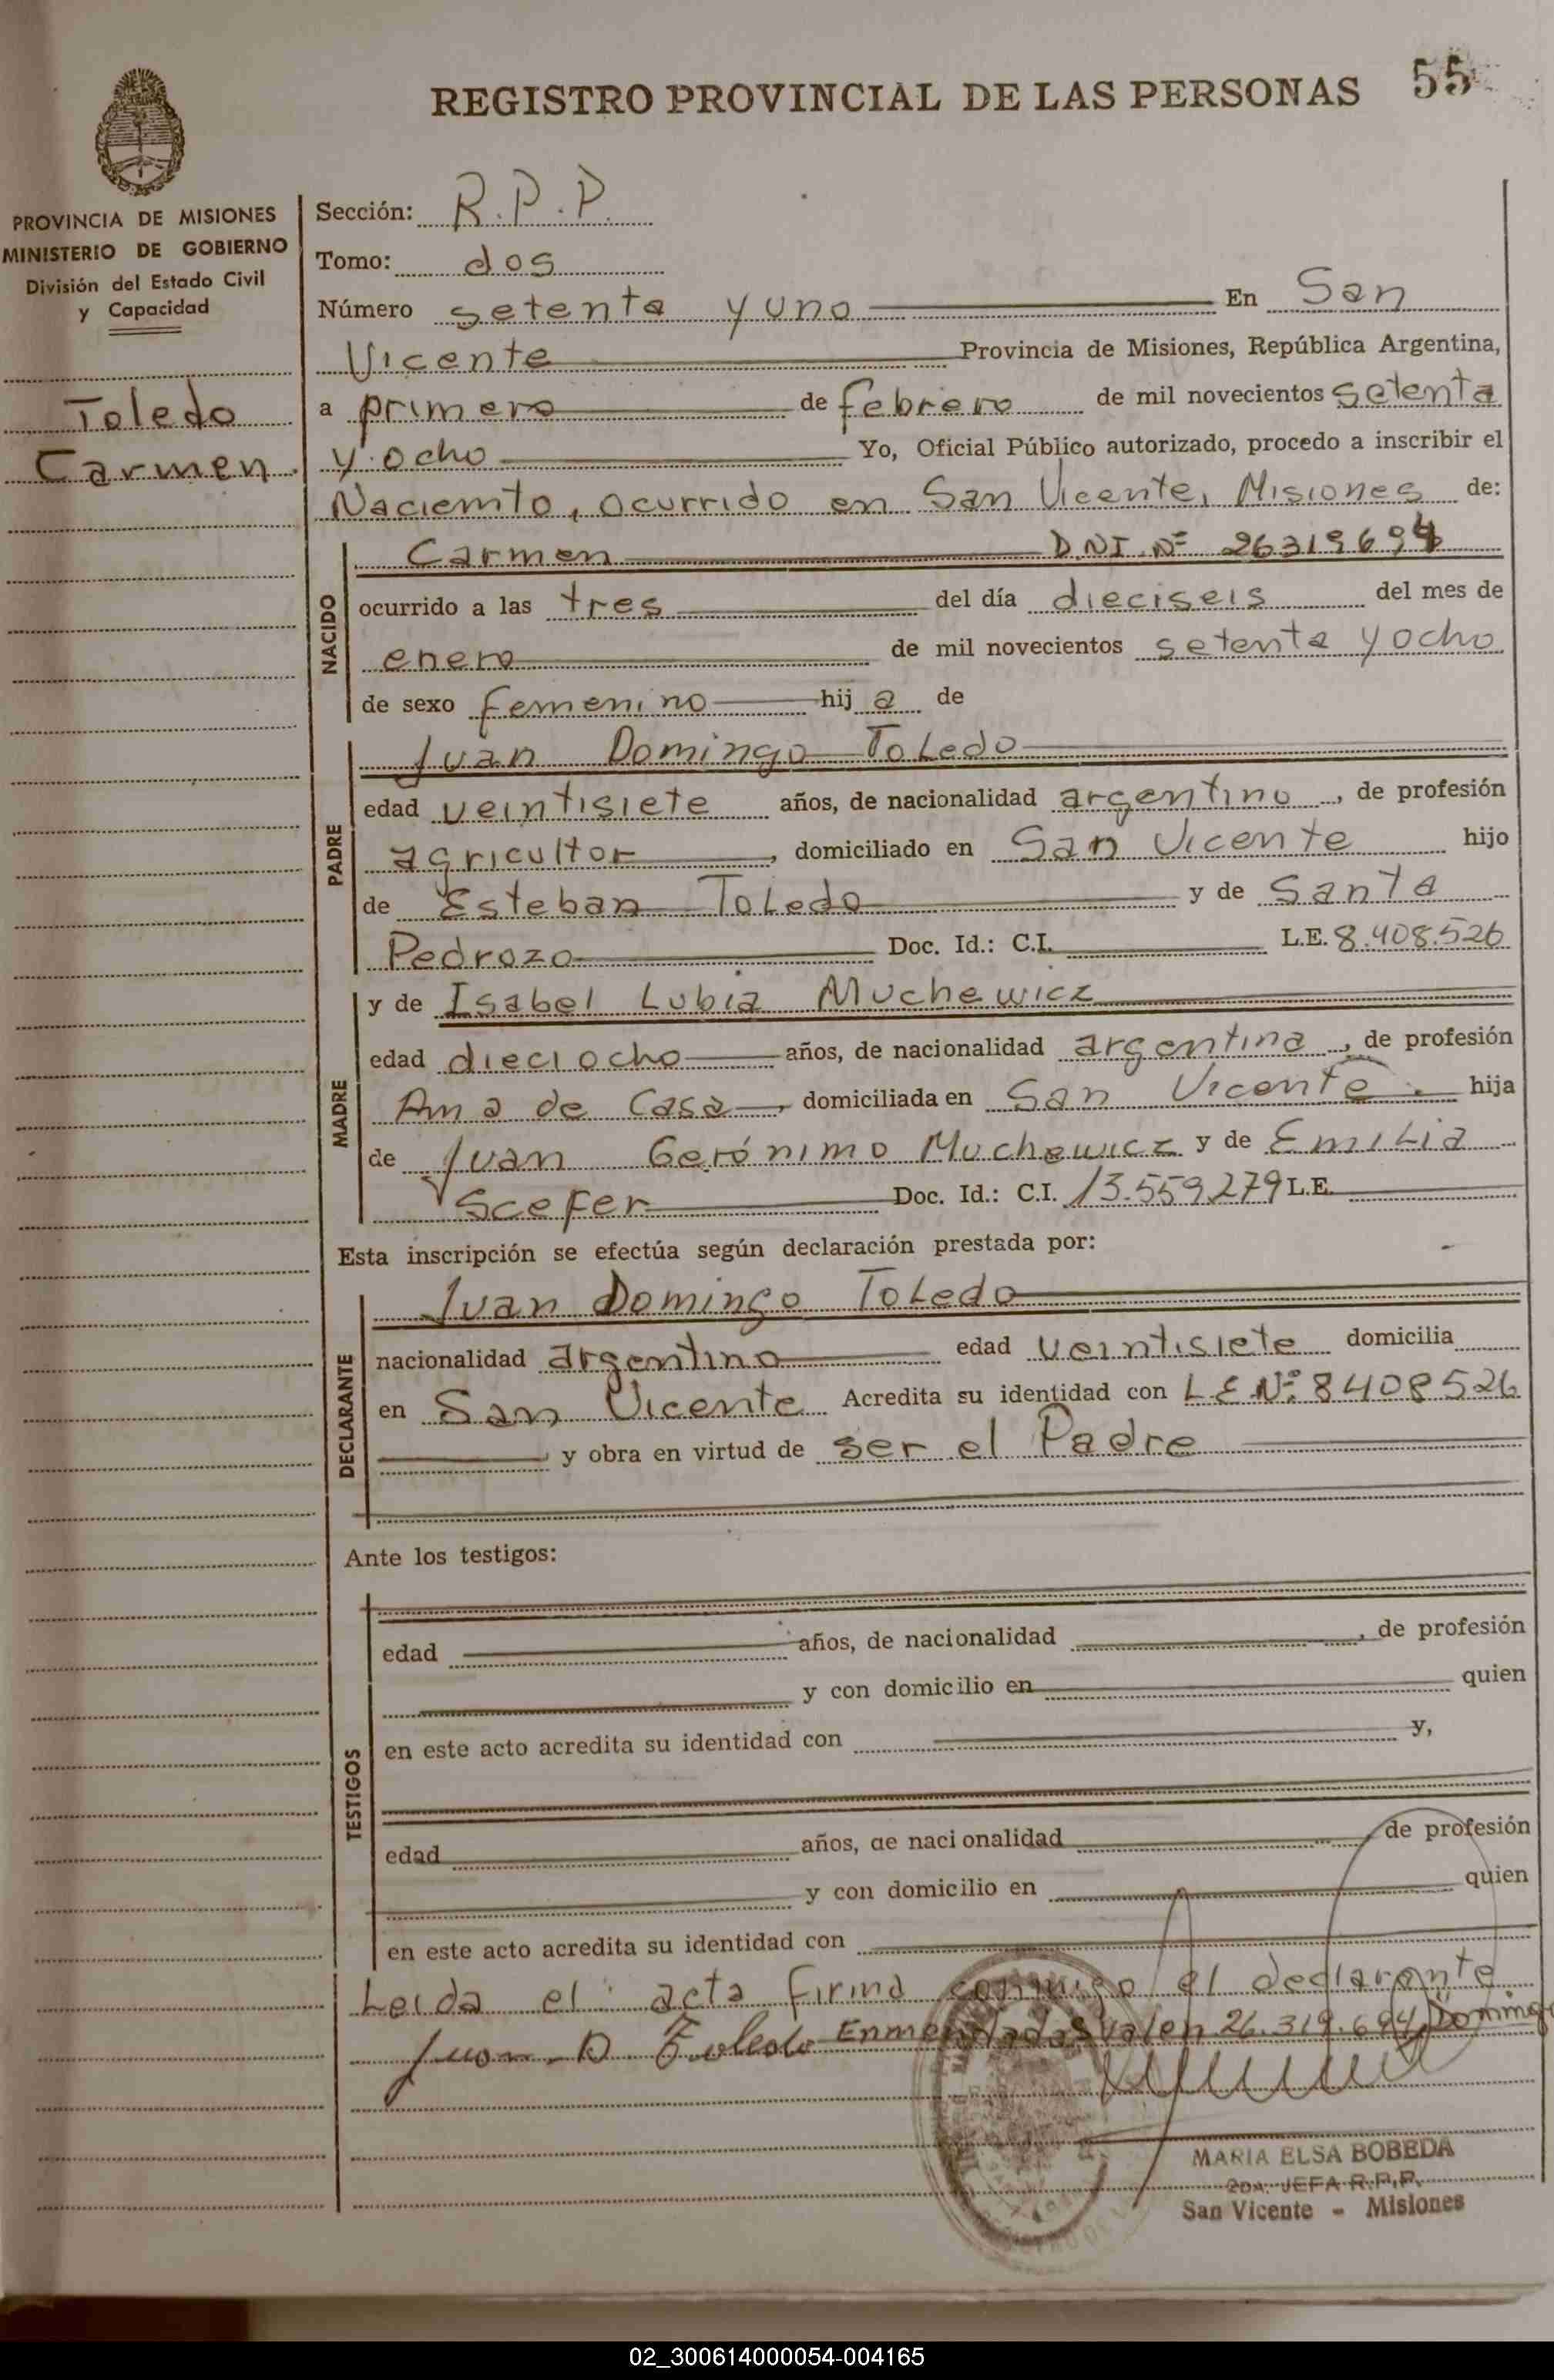 REGISTRO PROVINCIAL DE LAS PERSONAS 55
PROVINCIA DE MISIONES
MINISTERIO DE GOBIERNO
División del Estado Civil
y Capacidad
Toledo
Carmen
Sección: R.P.P.
Tomo: dos
Número setenta y uno En San
Vicente Provincia de Misiones, República Argentina,
a primero de febrero de mil novecientos setenta
y ocho Yo, Oficial Público autorizado, procedo a inscribir el
Naciemto, ocurrido en San Vicente, Misiones de:
NACIDO
Carmen D.N.I. Nº 26319694
ocurrido a las tres del día dieciseis del mes de
enero de mil novecientos setenta y ocho
de sexo femenino hija de
PADRE
Juan Domingo Toledo
edad veintisiete años, de nacionalidad argentino, de profesión
agricultor, domiciliado en San Vicente hijo
de Esteban Toledo y de Santa
Pedrozo Doc. Id.: C.I. L.E. 8.408.526
MADRE
y de Isabel Lubia Muchewicz
edad dieciocho años, de nacionalidad argentina, de profesión
Ama de Casa, domiciliada en San Vicente. hija
de Juan Gerónimo Muchewicz y de Emilia
Scefer Doc. Id.: C.I. 13.559.279 L.E.
Esta inscripción se efectúa según declaración prestada por:
DECLARANTE
Juan Domingo Toledo
nacionalidad argentino edad veintisiete domicilia
en San Vicente Acredita su identidad con L.E.Nº: 8408526
y obra en virtud de ser el Padre
Ante los testigos:
TESTIGOS
edad años, de nacionalidad , de profesión
y con domicilio en quien
en este acto acredita su identidad con y,
edad años, de nacionalidad de profesión
y con domicilio en quien
en este acto acredita su identidad con
Leida el acta firma conmigo el declarante
Juan D. Toledo Enmendados valen 26.319.694, Domingo
MARIA ELSA BOBEDA
2DA. JEFA R.P.P.
San Vicente - Misiones
02_300614000054-004165